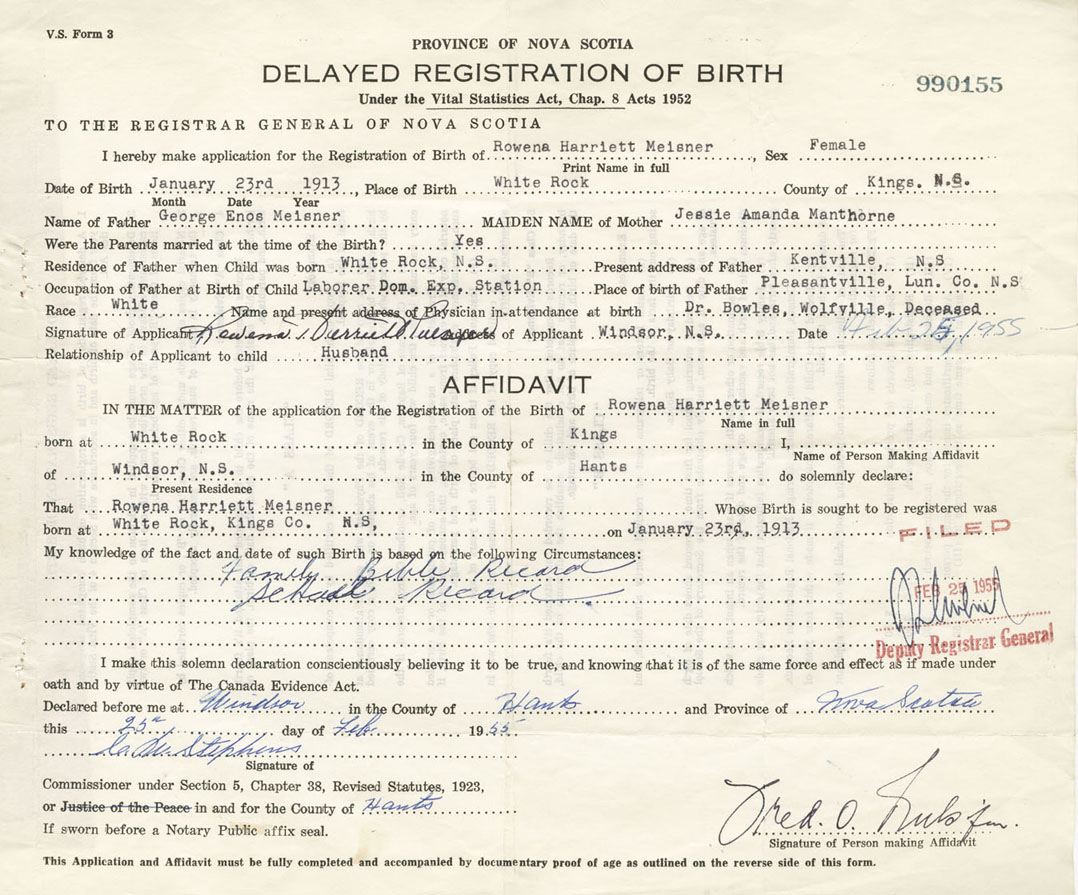 V.S. Form 3
PROVINCE OF NOVA SCOTIA
DELAYED REGISTRATION OF BIRTH
990155
Under the Vital Statistics Act, Chap. 8 Acts 1952
TO THE REGISTRAR GENERAL OF NOVA SCOTIA
I hereby make application for the Registration of Birth of Rowena Harriett Meisner, Sex Female
Print Name in full
Date of Birth January 23rd 1913, Place of Birth White Rock County of Kings. N.S.
Month Date Year
Name of Father George Enos Meisner MAIDEN NAME of Mother Jessie Amanda Manthorne
Were the Parents married at the time of the Birth? Yes
Residence of Father when Child was born White Rock, N.S. Present address of Father Kentville, N.S
Occupation of Father at Birth of Child Laborer Dom. Exp. Station Place of birth of Father Pleasantville, Lun. Co. N.S
Race White Name and present address of Physician in attendance at birth Dr. Bowles, Wolfville, Deceased
Signature of Applicant Rowena of Applicant Windsor, N.S. Date Feb. 25, 1955
Relationship of Applicant to child Husband
AFFIDAVIT
IN THE MATTER of the application for the Registration of the Birth of Rowena Harriett Meisner
Name in full
born at White Rock in the County of Kings I,
Name of Person Making Affidavit
of Windsor, N.S. in the County of Hants do solemnly declare:
Present Residence
That Rowena Harriett Meisner Whose Birth is sought to be registered was
born at White Rock, Kings Co. N.S, on January 23rd, 1913
FILED
My knowledge of the fact and date of such Birth is based on the following Circumstances:
Family Bible Record
School Record.
FEB 25 1955
Deputy Registrar General
I make this solemn declaration conscientiously believing it to be true, and knowing that it is of the same force and effect as if made under
oath and by virtue of The Canada Evidence Act.
Declared before me at Windsor in the County of Hants and Province of Nova Scotia
this 25th day of Feb. 1955.
Stephens
Signature of
Commissioner under Section 5, Chapter 38, Revised Statutes, 1923,
or Justice of the Peace in and for the County of Hants
If sworn before a Notary Public affix seal.
Fred. O.
Signature of Person making Affidavit
This Application and Affidavit must be fully completed and accompanied by documentary proof of age as outlined on the reverse side of this form.